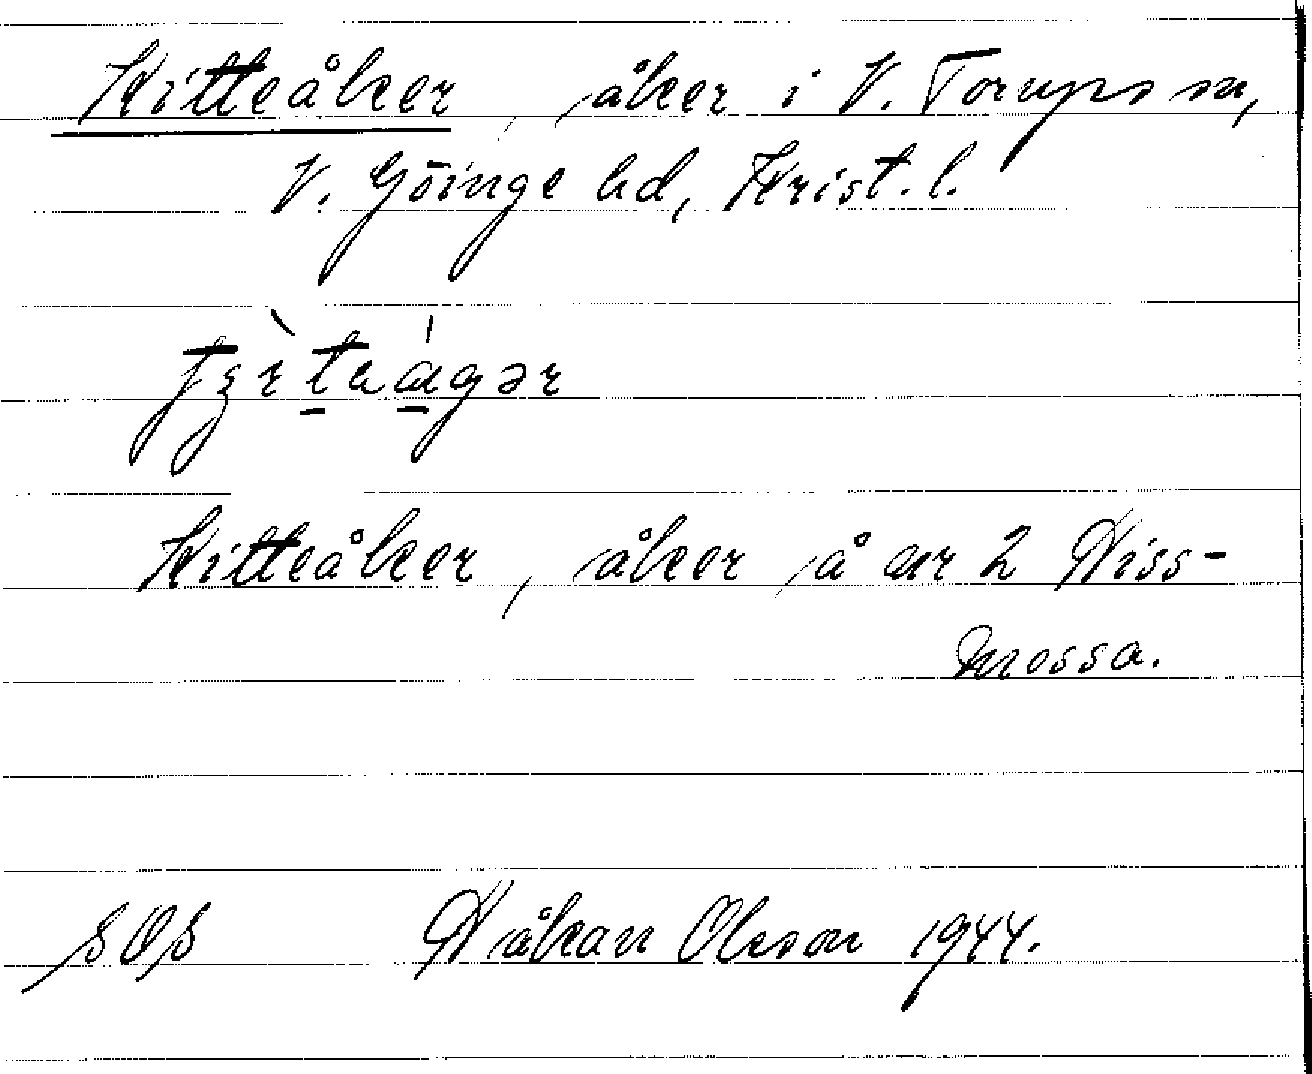 Kitteåker, åker i V. Torups sn,
V. Göinge hd, Krist. l.
Kitteåker, åker å nr 2 Hiss-
mossa.
SOS Håkan Olsson 1944.